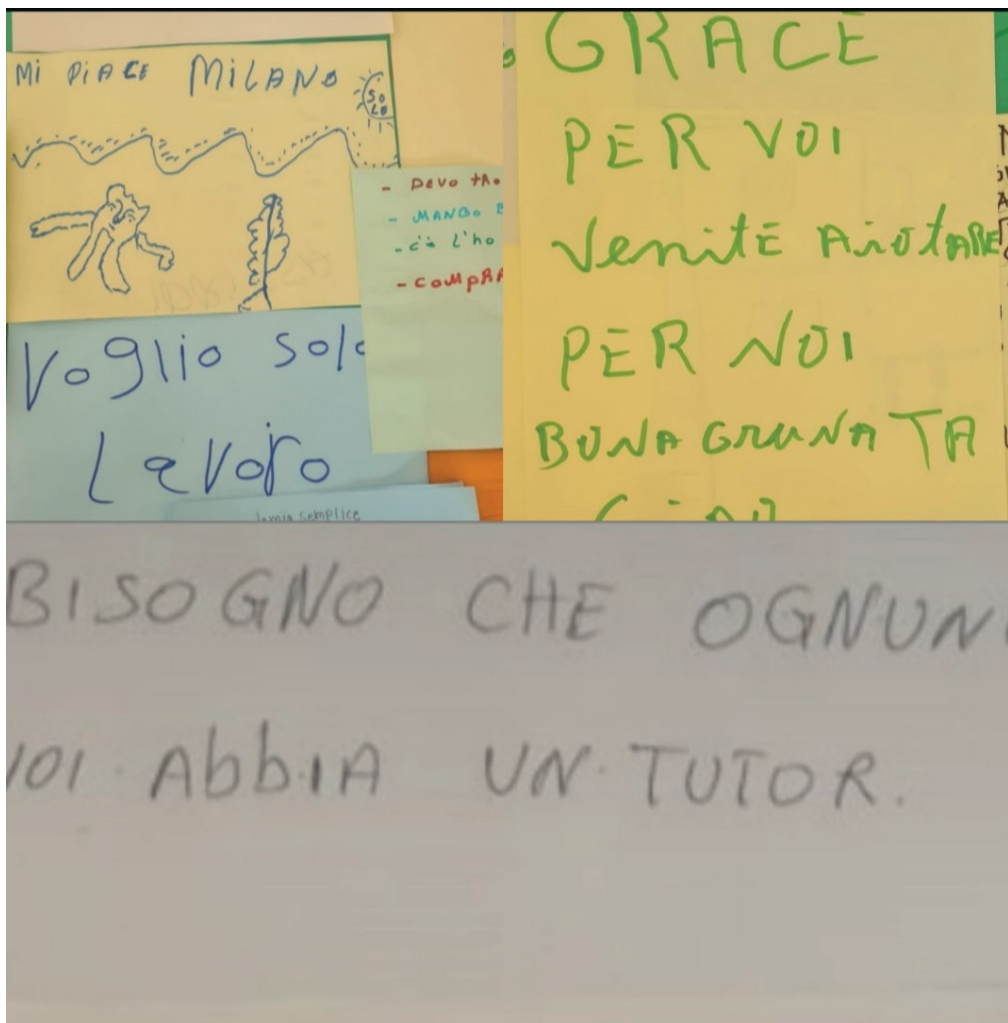 MI PIACE MILANO
SOLE
- DEVO
- MANGO
- c'è l'ho
- COMPRA
Voglio solo
Lavoro
semplice
GRACE
PER VOI
VenitE AiotARE
PER NOI
BUNA GRUNATA
CiAO
BISOGNO CHE OGNUN
VOI AbbIA UN TUTOR.